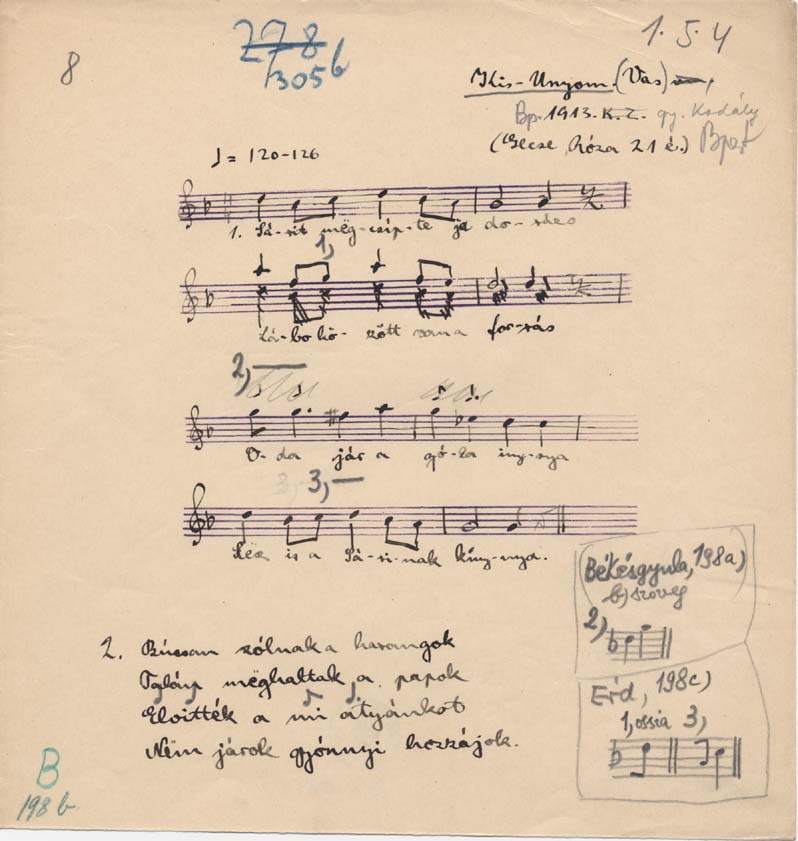 278
305b
1. 5. 4
8
Kis-Unyom. (Vas)
Bp. 1913. K. Z. gy. Kodály
(Gecse Róza 21 é.) Bpest
♩= 120-126
1. Sá-sit mëg-csíp-te ja do-
1,
Lá-bo kö-zött a for-rás
2,
O-da jár a gó-la iny-nya
3, 3,
Lëz is a Sá-si-nak kíny-nya.
Békésgyula, 198a)
b) szöveg
2)
Erd, 198c)
1, ossia 3,
2. Búcsan szólnak a harangok
Talány mëghaltak a papok
Elvitték a mi atyánkot
Nëm járok gyónnyi hozzájok.
B
198 b